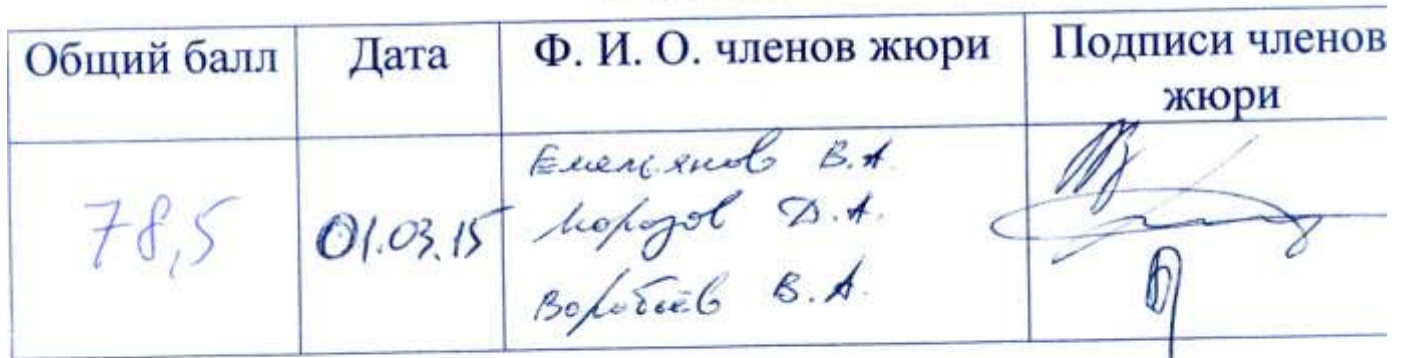 Общий балл Дата Ф. И. О. членов жюри Подписи членов жюри
78,5 01.03.15 Емельянов В.А.
Морозов Д.А.
Воробьёв В.А.